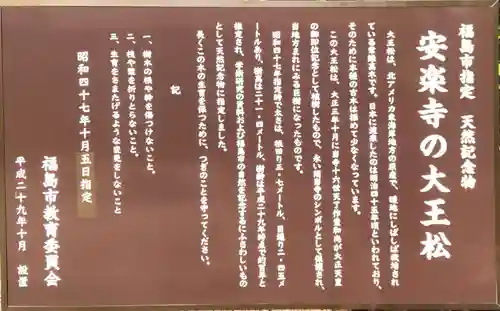 福島市指定　天然記念物
安楽寺の大王松
大王松は、北アメリカ東海岸地方の原産で、暖地にしばしば栽培され
ている常緑高木です。日本に渡来したのは明治四十五年頃といわれており、
そのために本種の古木は極めて少なくなっています。
この大王松は、大正三年十月に当寺十六世天了作童和尚が大正天皇
の御即位記念として植樹したもので、永い間当寺のシンボルとして保護され、
当地方まれにみる巨樹になったものです。
昭和四十七年指定時で太さは、根回り三・七メートル、目通り二・四五メ
ートルあり、樹高は二十一・四メートル、樹齢は平成二十九年時点で約百年と
推定され、学術研究の資料および福島市の自然を記念するにふさわしいもの
として天然記念物に指定しました。
長くこの木の生育を保つために、つぎのことをやってください。
記
一、樹木の根や幹を傷つけないこと。
二、枝や葉を折りとらないこと。
三、生育をさまたげるような行為をしないこと
昭和四十七年十月五日指定
福島市教育委員会
平成二十九年十月　設置